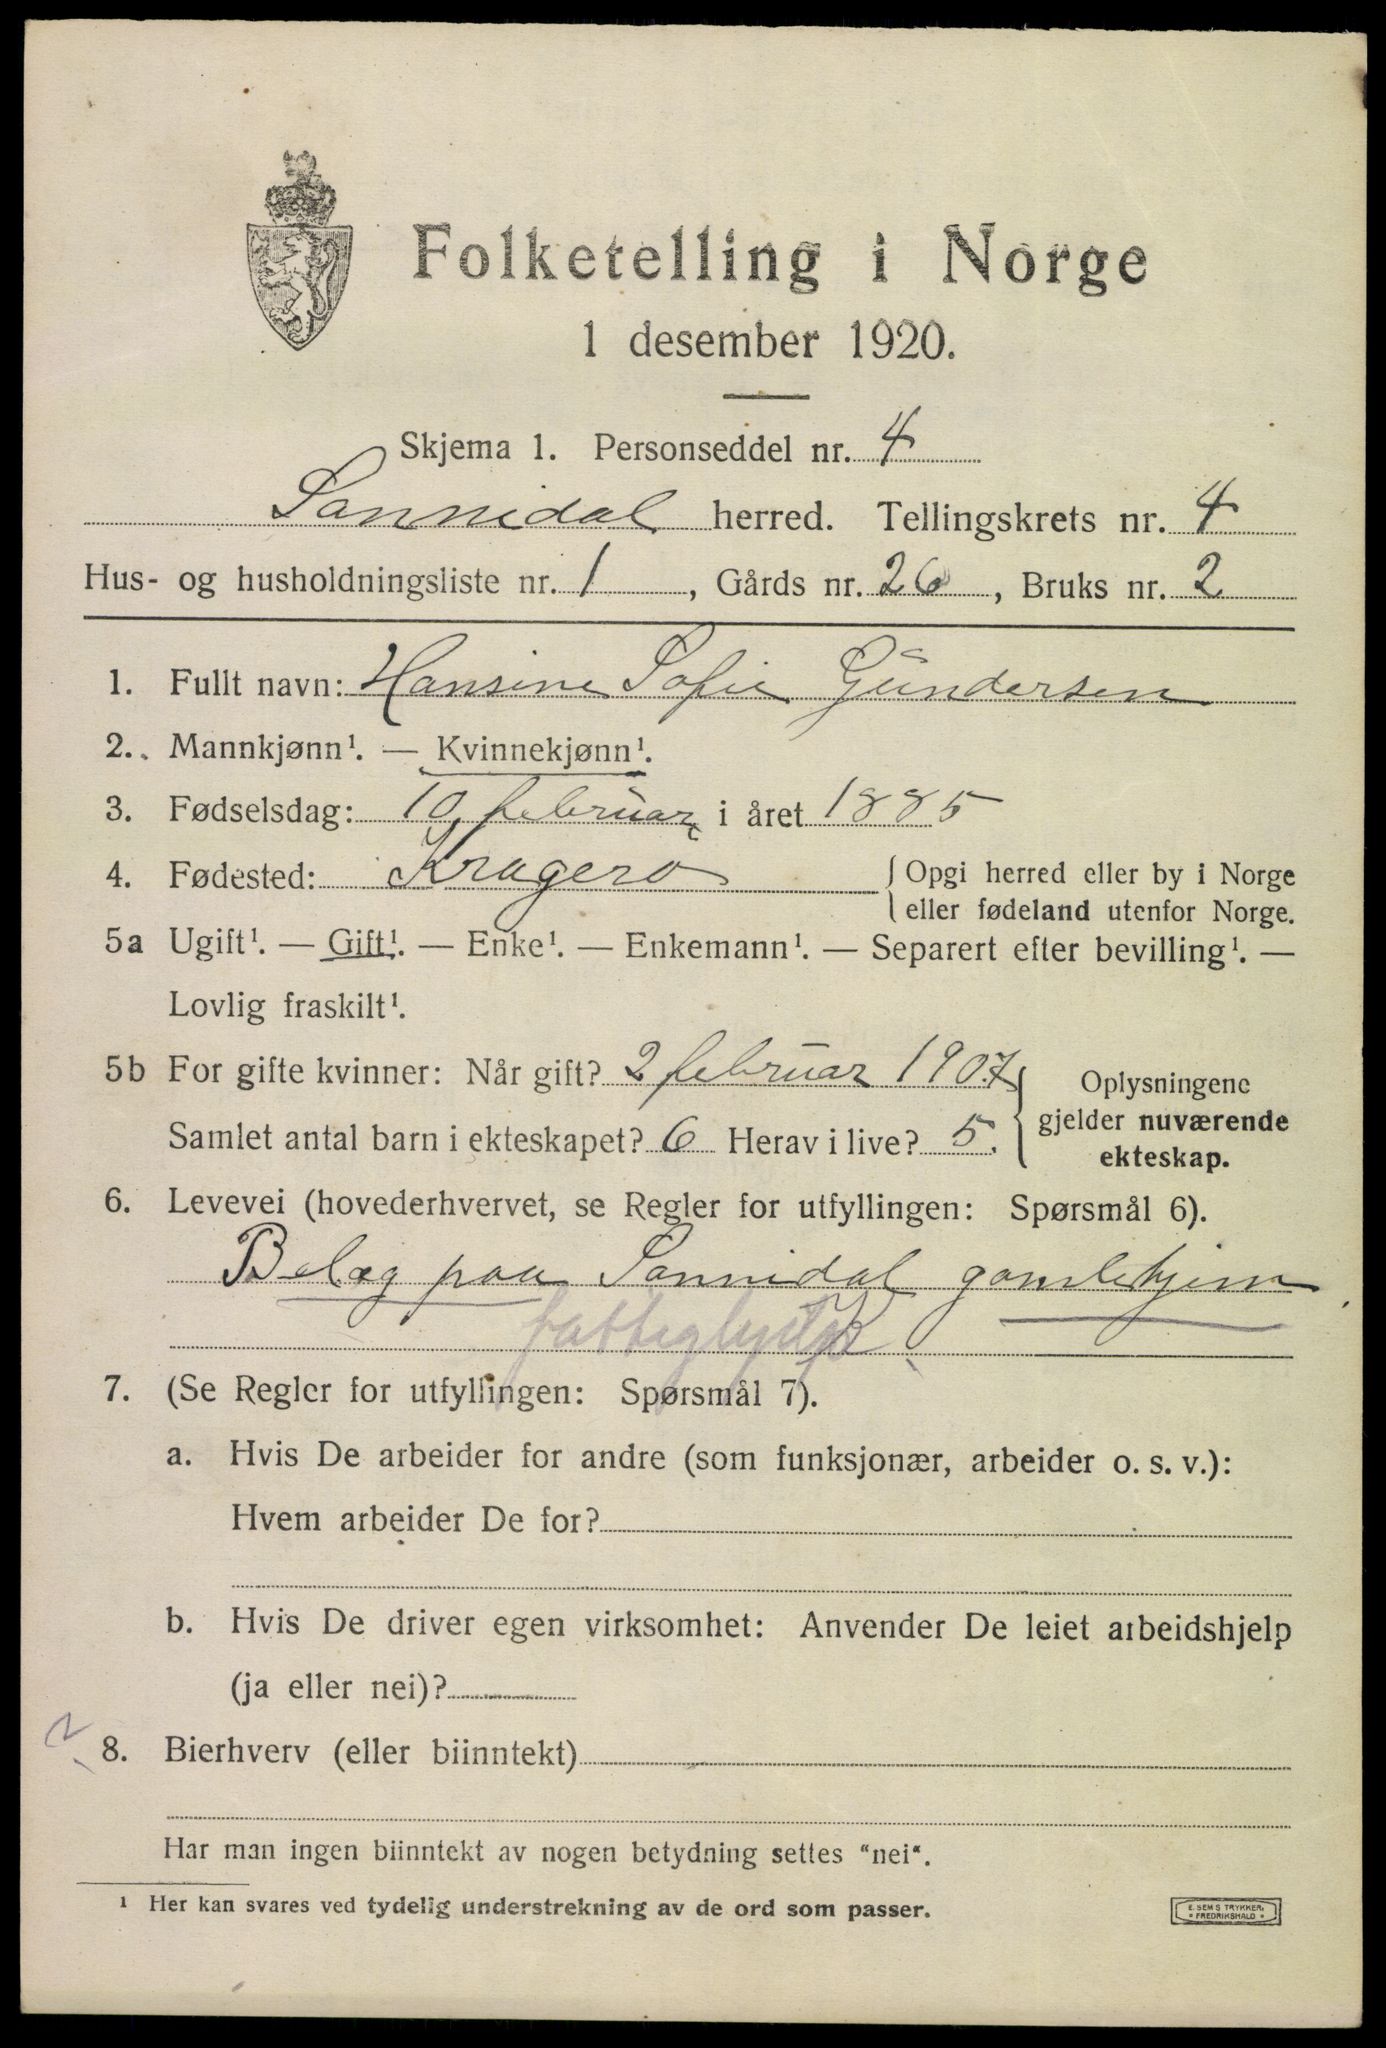 Folketelling i Norge
1 desember 1920.
Skjema 1. Personseddel nr. 4
Sannidal herred. Tellingskrets nr. 4
Hus- og husholdningsliste nr. 1, Gårds nr. 26, Bruks nr. 2
1. Fullt navn: Hansine Sofie Gundersen
2. Mannkjønn¹. — Kvinnekjønn¹.
3. Fødselsdag: 10 februar i året 1885
4. Fødested: Kragerø {Opgi herred eller by i Norge
eller fødeland utenfor Norge.
5a Ugift¹. — Gift¹. — Enke¹. — Enkemann¹. — Separert efter bevilling¹. —
Lovlig fraskilt¹.
5b For gifte kvinner: Når gift? 2 februar 1907
Samlet antal barn i ekteskapet? 6 Herav i live? 5.
Oplysningene
gjelder nuværende
ekteskap.
6. Levevei (hovederhvervet, se Regler for utfyllingen: Spørsmål 6).
Belæg paa Sannidal gamlehjem
7. (Se Regler for utfyllingen: Spørsmål 7).
a. Hvis De arbeider for andre (som funksjonær, arbeider o. s. v.):
Hvem arbeider De for?
b. Hvis De driver egen virksomhet: Anvender De leiet arbeidshjelp
(ja eller nei)?
8. Bierhverv (eller biinntekt)
Har man ingen biinntekt av nogen betydning settes "nei".
¹ Her kan svares ved tydelig understrekning av de ord som passer.
E. SEMS TRYKKERI
FREDRIKSHALD